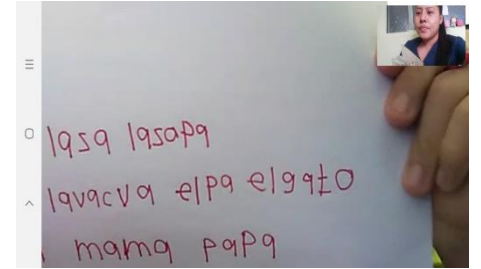 lasa lasapa
lavacva elpa elgato
mama papa